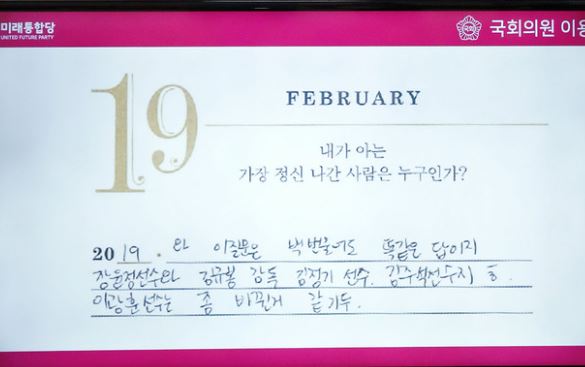 미래통합당
UNITED FUTURE PARTY
국회
국회의원 이용
19
FEBRUARY
내가 아는
가장 정신 나간 사람은 누구인가?
2019. 와 이질문은 백번물어도 똑같은 답이지
장윤정선수와 김규봉 감독 김정기 선수. 김주석선수지 ㅎ.
이광훈선수는 좀 바뀐거 같기두.